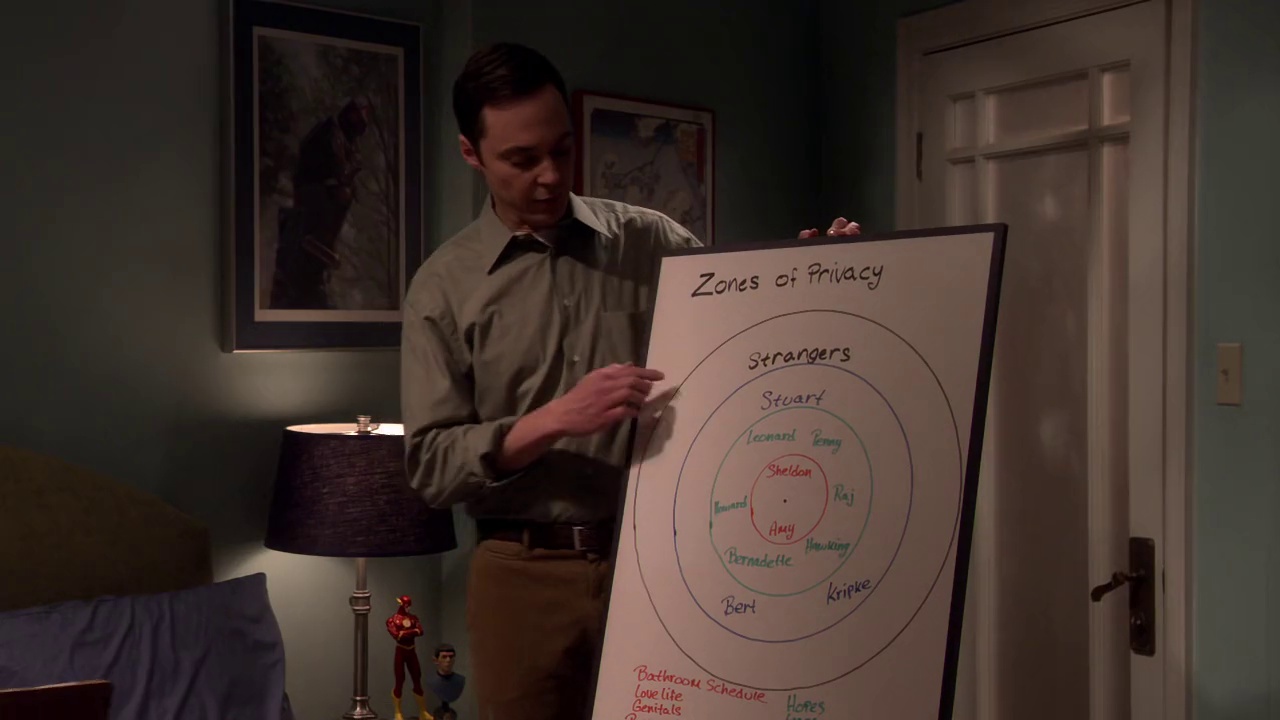 Zones of Privacy
Strangers
Stuart
Leonard Penny
Sheldon
Howard Raj
Amy
Bernadette Hawking
Bert Kripke
Bathroom Schedule
Love life Hopes
Genitals